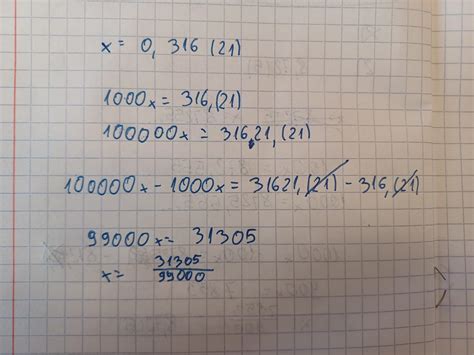 x = 0, 316 (21)
1000x = 316,(21)
100000x = 31621,(21)
100000x - 1000x = 31621,(21) - 316,(21)
99000x = 31305
x = 31305/99000